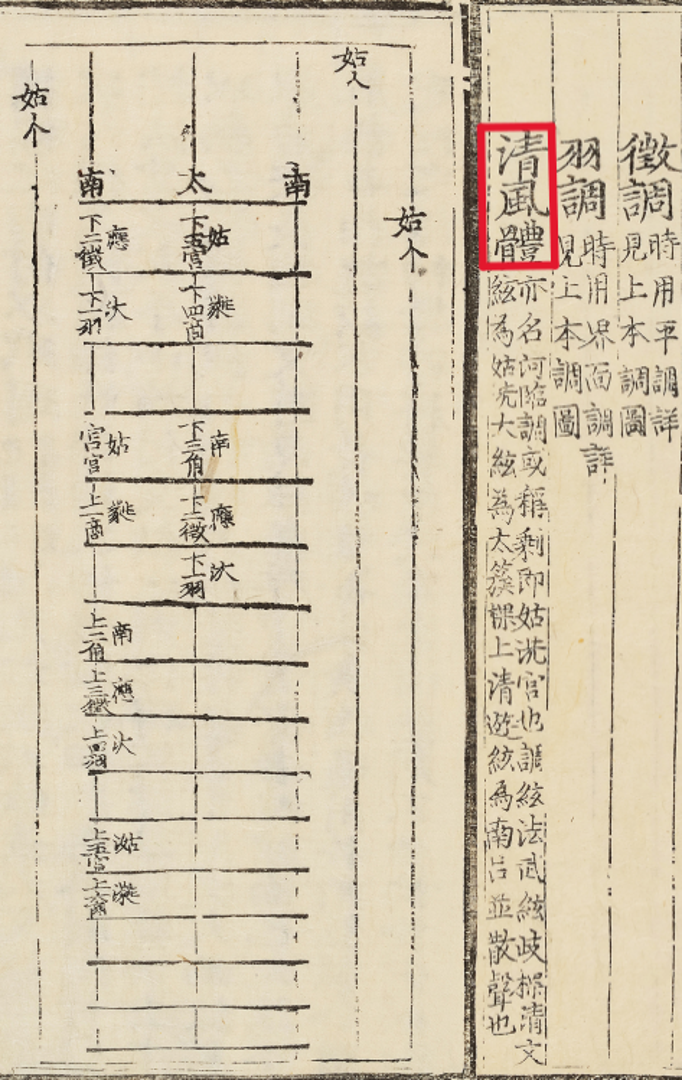 徵調
時用平調詳
見上本調圖
羽調
時用界面調詳
見上本調圖
清風體
亦名河臨調或稱剩即姑洗宮也調絃法武絃歧棵清文
絃為姑洗大絃為太簇棵上清遊絃為南呂並散聲也
姑个
姑人
南
太
姑 下五宮
蕤 下四商
南 下三角
應 下二徵
汰 下一羽
南
應 下二徵
汰 下一羽
姑 宮宮
蕤 上一商
南 上二角
應 上三徵
汰 上四羽
㴌 上五宮
㶋 上六商
姑个